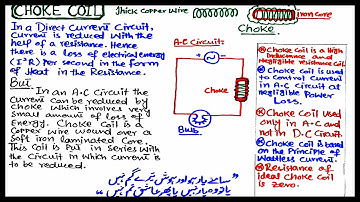 CHOKE COIL
Thick Copper Wire
Iron Core
Choke
In a Direct Current Circuit.
Current is reduced with the
help of a resistance. Hence
there is a loss of electrical energy
(I²R) per second in the form
of Heat in the Resistance.
But
In an A-C Circuit the
Current can be reduced by
Choke which involves very
Small amount of loss of
Energy. Choke Coil is a
Copper wire wound over a
Soft iron laminated Core.
This Coil is Put in Series with
the Circuit in which Current is
to be reduced.
A-C Circuit
Choke
Bulb
Choke Coil is a High
inductance and
Negligible resistance Coil
Choke Coil is
used to Control Current
in A-C Circuit at
negligible Power
Loss.
Choke Coil used
only in A-C and
not in D.C Circuit
Choke Coil is based
on the Principle of
Wattless Current.
Resistance of
ideal Choke Coil
is zero.